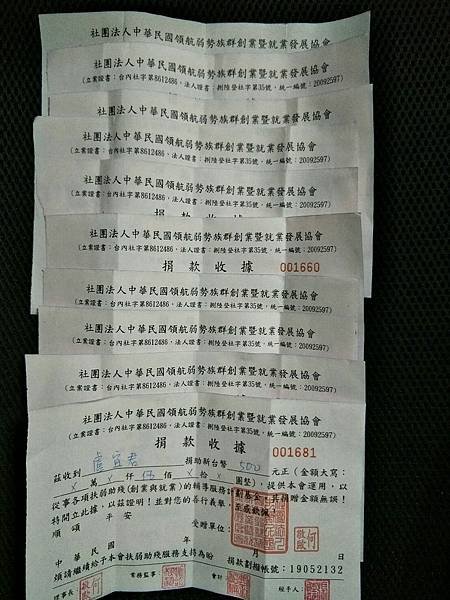 社團法人中華民國領航弱勢族群創業暨就業發展協會
社團法人中華民國領航弱勢族群創業暨就業發展協會
(立案證書：台內社字第8612486，法人證書：捌陸登社字第35號，統一編號：20092597)
社團法人中華民國領航弱勢族群創業暨就業發展協會
社團法人中華民國領航弱勢族群創業暨就業發展協會
(立案證書：台內社字第8612486，法人證書：捌陸登社字第35號，統一編號：20092597)
社團法人中華民國領航弱勢族群創業暨就業發展協會
(立案證書：台內社字第8612486，法人證書：捌陸登社字第35號，統一編號：20092597)
捐款收據
社團法人中華民國領航弱勢族群創業暨就業發展協會
(立案證書：台內社字第8612486，法人證書：捌陸登社字第35號，統一編號：20092597)
捐款收據 001660
社團法人中華民國領航弱勢族群創業暨就業發展協會
(立案證書：台內社字第8612486，法人證書：捌陸登社字第35號，統一編號：20092597)
社團法人中華民國領航弱勢族群創業暨就業發展協會
(立案證書：台內社字第8612486，法人證書：捌陸登社字第35號，統一編號：20092597)
社團法人中華民國領航弱勢族群創業暨就業發展協會
(立案證書：台內社字第8612486，法人證書：捌陸登社字第35號，統一編號：20092597)
社團法人中華民國領航弱勢族群創業暨就業發展協會
(立案證書：台內社字第8612486，法人證書：捌陸登社字第35號，統一編號：20092597)
捐款收據 001681
茲收到 盧宜君 捐助新台幣 500 元正 (金額大寫：
萬 仟 伍 佰 拾 圓整)，提供本會運用，
從事各項扶弱助殘(創業與就業)的輔導服務計劃基金，其捐贈金額無誤！
特開立此據，以茲證明！並對您的善行義舉，至感欽佩！
順頌 平安 受贈單位：
中華民國 年 月 日
煩請繼續給予本會扶弱助殘服務支持為盼 捐款劃撥帳號：19052132
理事長： 常務監事： 會計： 經手人：